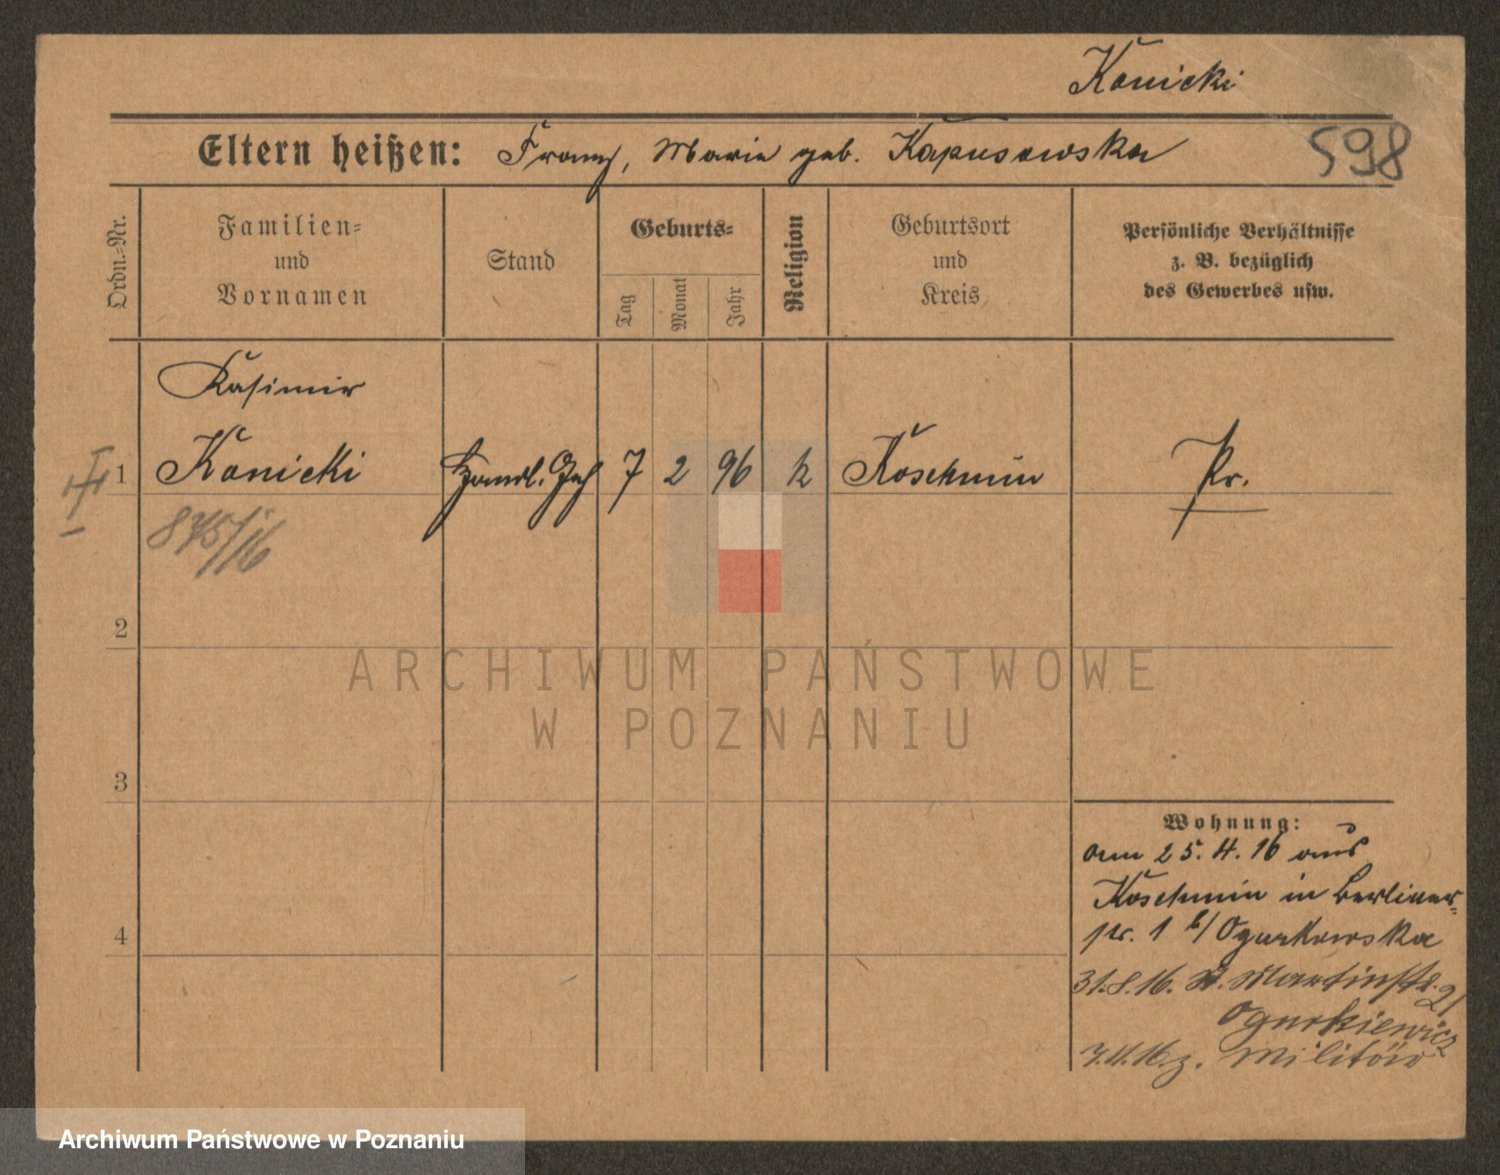 Konicki
Eltern heißen: Franz, Marie geb. Kapusowska
598
Ordn.-Nr.
Familien-
und
Vornamen
Stand
Geburts-
Tag
Monat
Jahr
Religion
Geburtsort
und
Kreis
Persönliche Verhältnisse
z. B. bezüglich
des Gewerbes usw.
Kasimir
1 Konicki Handl. Geh 7 2 96 k Koschmin Pr.
2
3
4
Wohnung:
am 25.4.16 aus
Koschmin in Berliner-
str. 1 b/ Ogurkowska
31.8.16. St. Martinstr. 21
Ogurkiewicz
7.11.16 z. Militär
ARCHIWUM PAŃSTWOWE
W POZNANIU
Archiwum Państwowe w Poznaniu